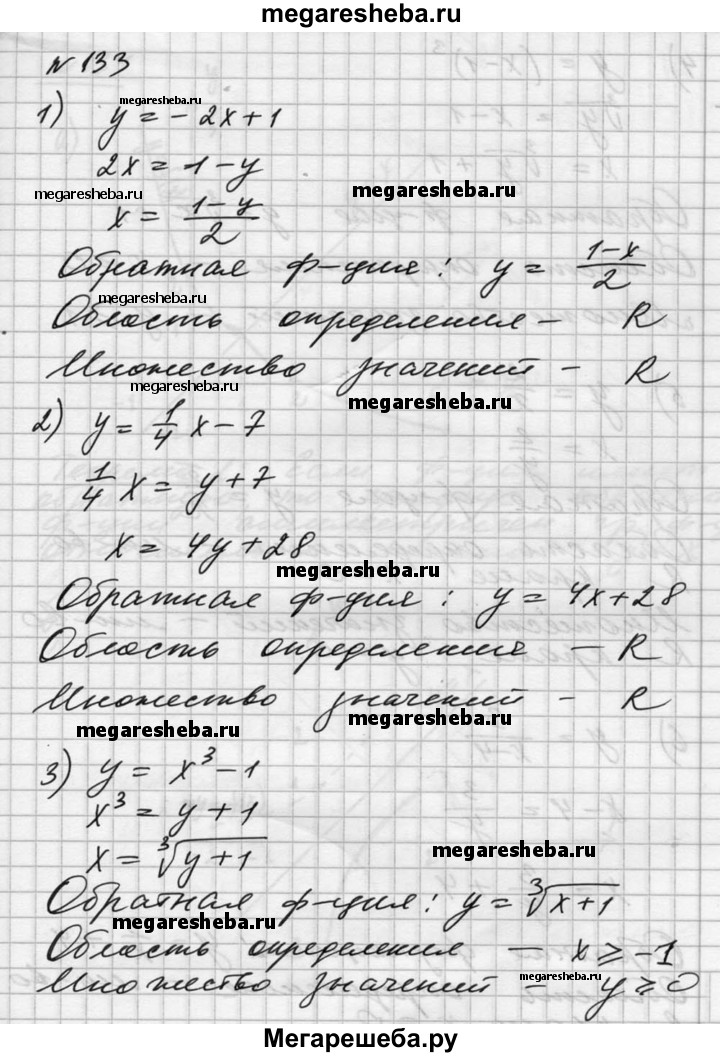 megaresheba.ru
№133
megaresheba.ru
1) y = - 2x + 1
2x = 1 - y
megaresheba.ru
megaresheba.ru
x = \frac{1-y}{2}
Обратная ф-ция : y = \frac{1-x}{2}
megaresheba.ru
Область определения - R
Множество значений - R
megaresheba.ru
megaresheba.ru
2) y = \frac{1}{4} x - 7
\frac{1}{4} x = y + 7
x = 4y + 28
megaresheba.ru
Обратная ф-ция : y = 4x + 28
Область определение - R
Множество значений - R
megaresheba.ru
megaresheba.ru
3) y = x³ - 1
x³ = y + 1
x = ∛(y + 1)
megaresheba.ru
Обратная ф-ция : y = ∛(x + 1)
megaresheba.ru
Область определения - x ≥ -1
megaresheba.ru
Множество значений = y ≥ 0
Мегарешеба.ру